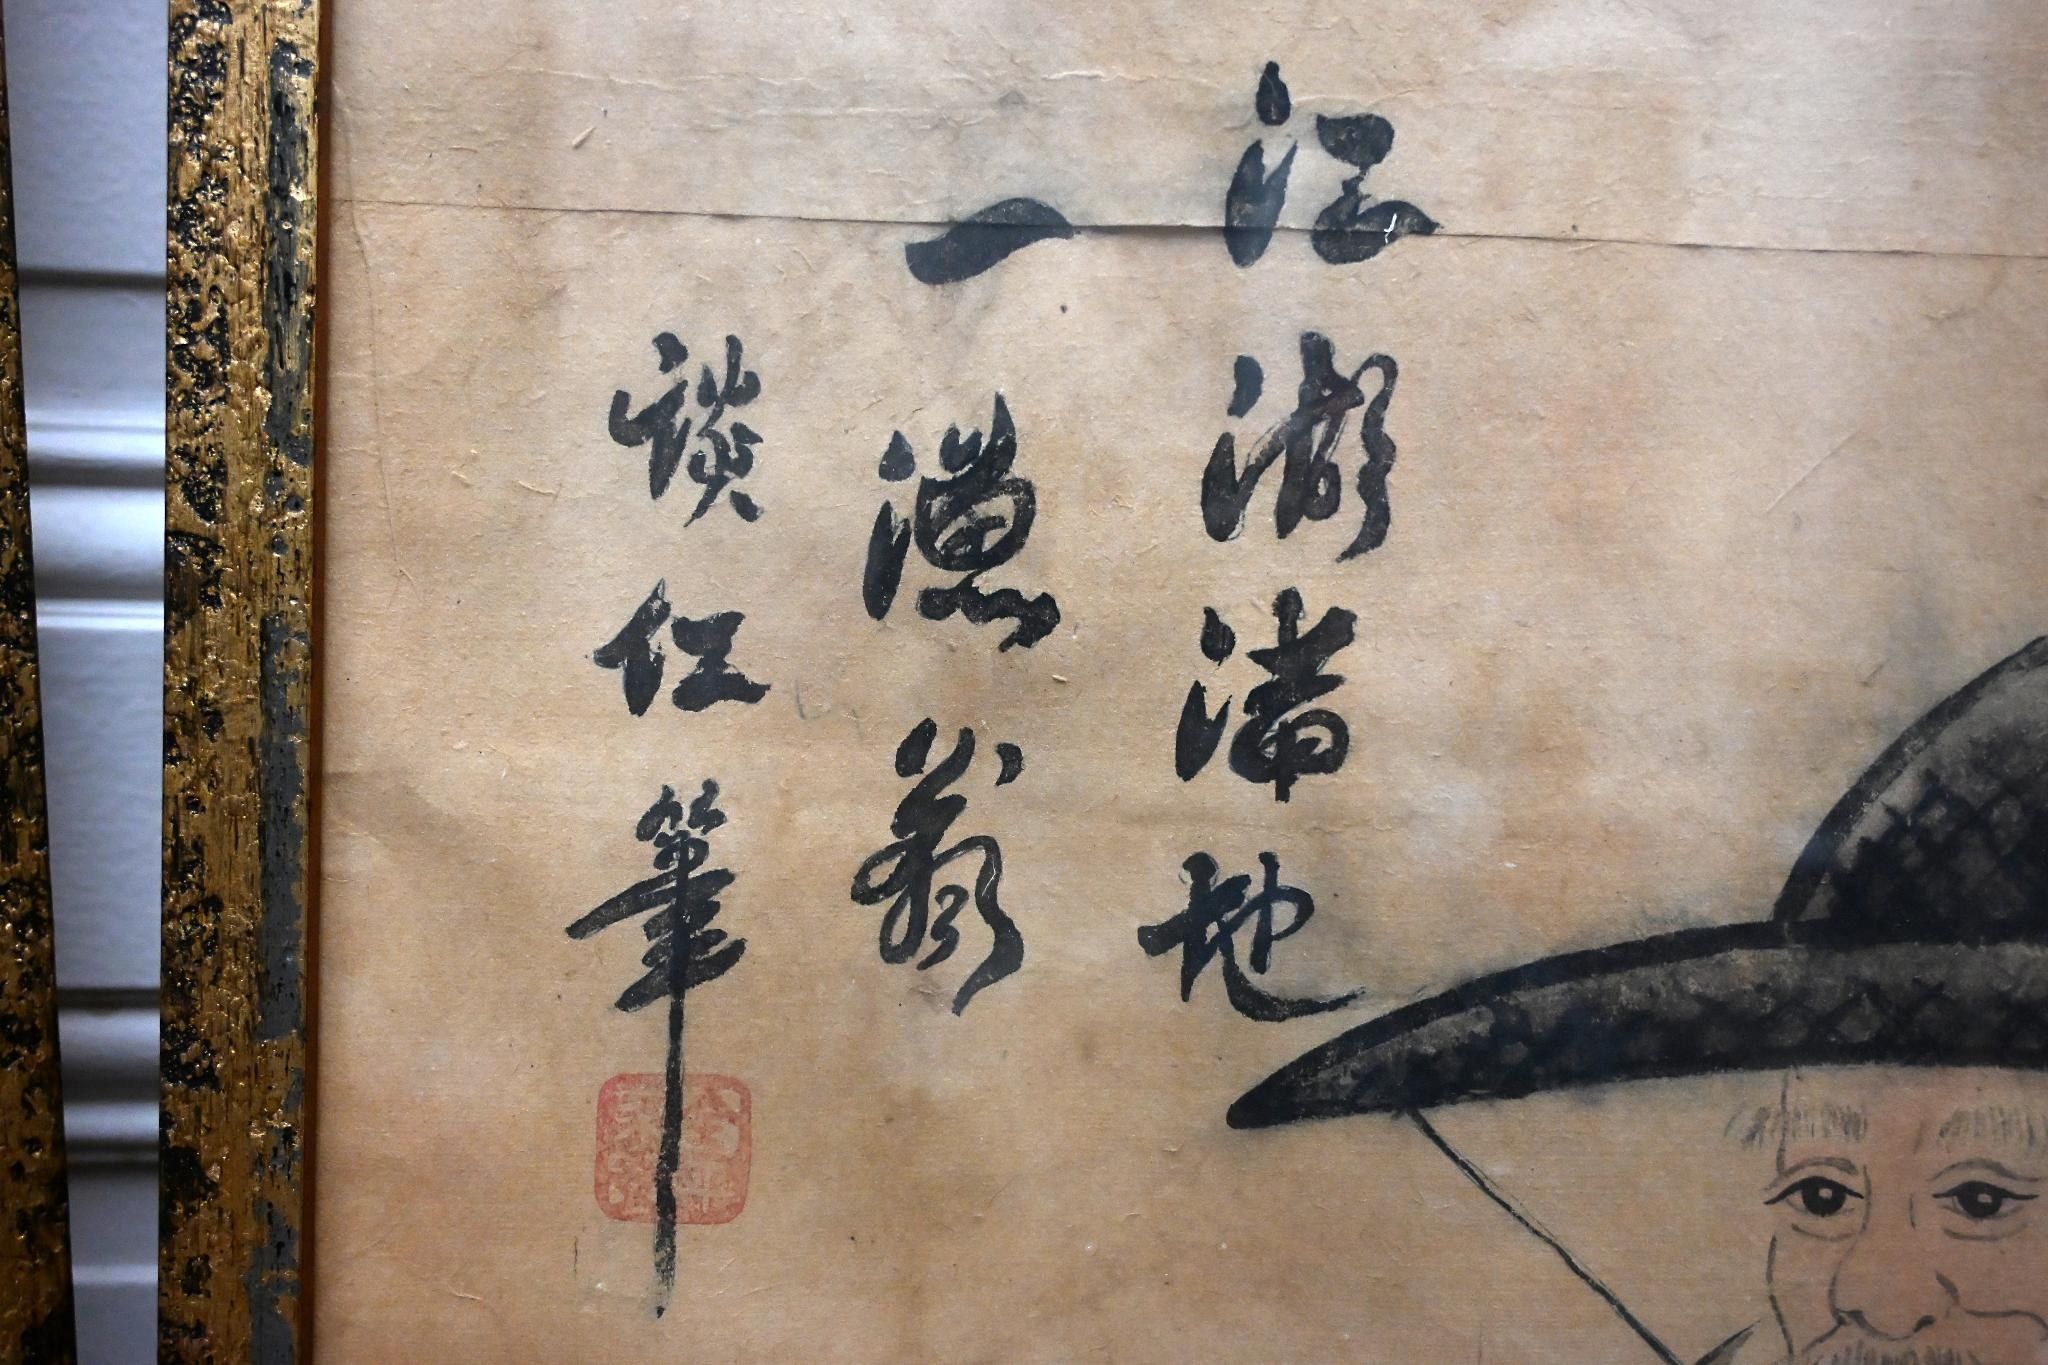 江湖滿地
一漁翁
談仁筆